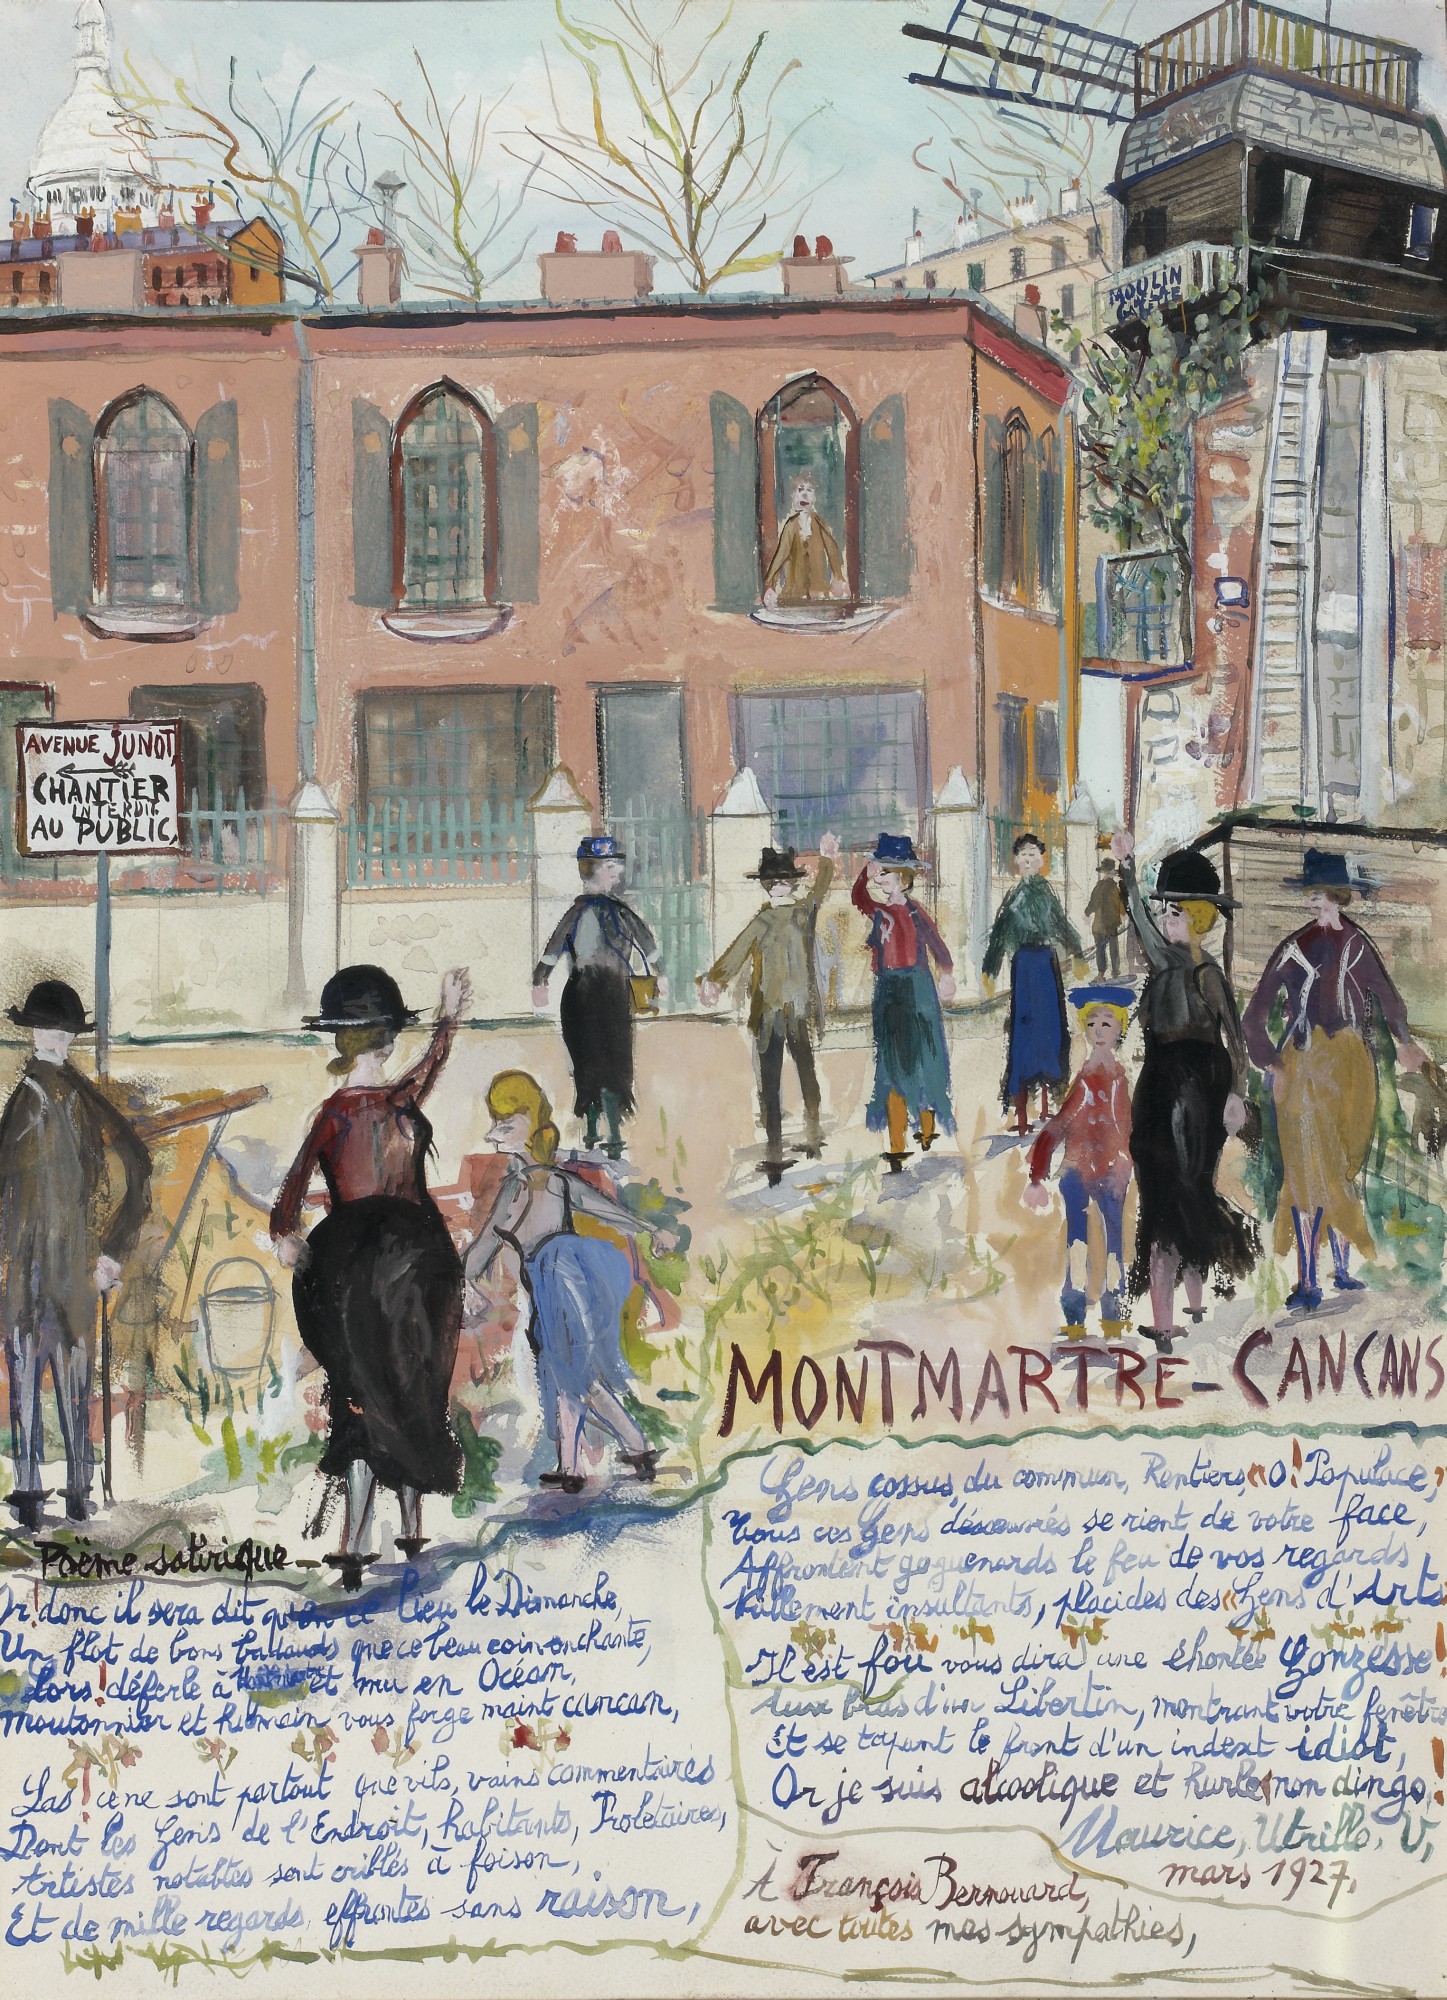 MOULIN
AVENUE JUNOT,
CHANTIER
INTERDIT
AU PUBLIC,
MONTMARTRE-CANCANS
Poëme satirique-
Or! donc il sera dit qu'en ce lieu le Dimanche,
Un flot de bons badauds que ce beau coin enchante,
Lors! déferle à Montmartre et mu en Océan,
Moutonnier et humain vous forge maint cancan,
Las! ce ne sont partout que vils, vains commentaires
Dont les Gens de l'Endroit, habitants, Proletaires,
Artistes notables sont criblés à foison,
Et de mille regards, effrontés sans raison,
Gens cossus, du commun, Rentiers, "O! Populace,"
Tous ces Gens désœuvrés se rient de votre face,
Affrontent goguenards le feu de vos regards
Vilement insultants, placides des "Gens d'Arts
Il est fou vous dira une éhontée Gonzesse!
Aux bras d'un Libertin, montrant votre fenêtre
Et se tapant le front d'un indext idiot,
Or je suis alcoolique et hurle non dingo,!
Maurice, Utrillo, V,
mars 1927,
À François Bernouard,
avec toutes mes sympathies,